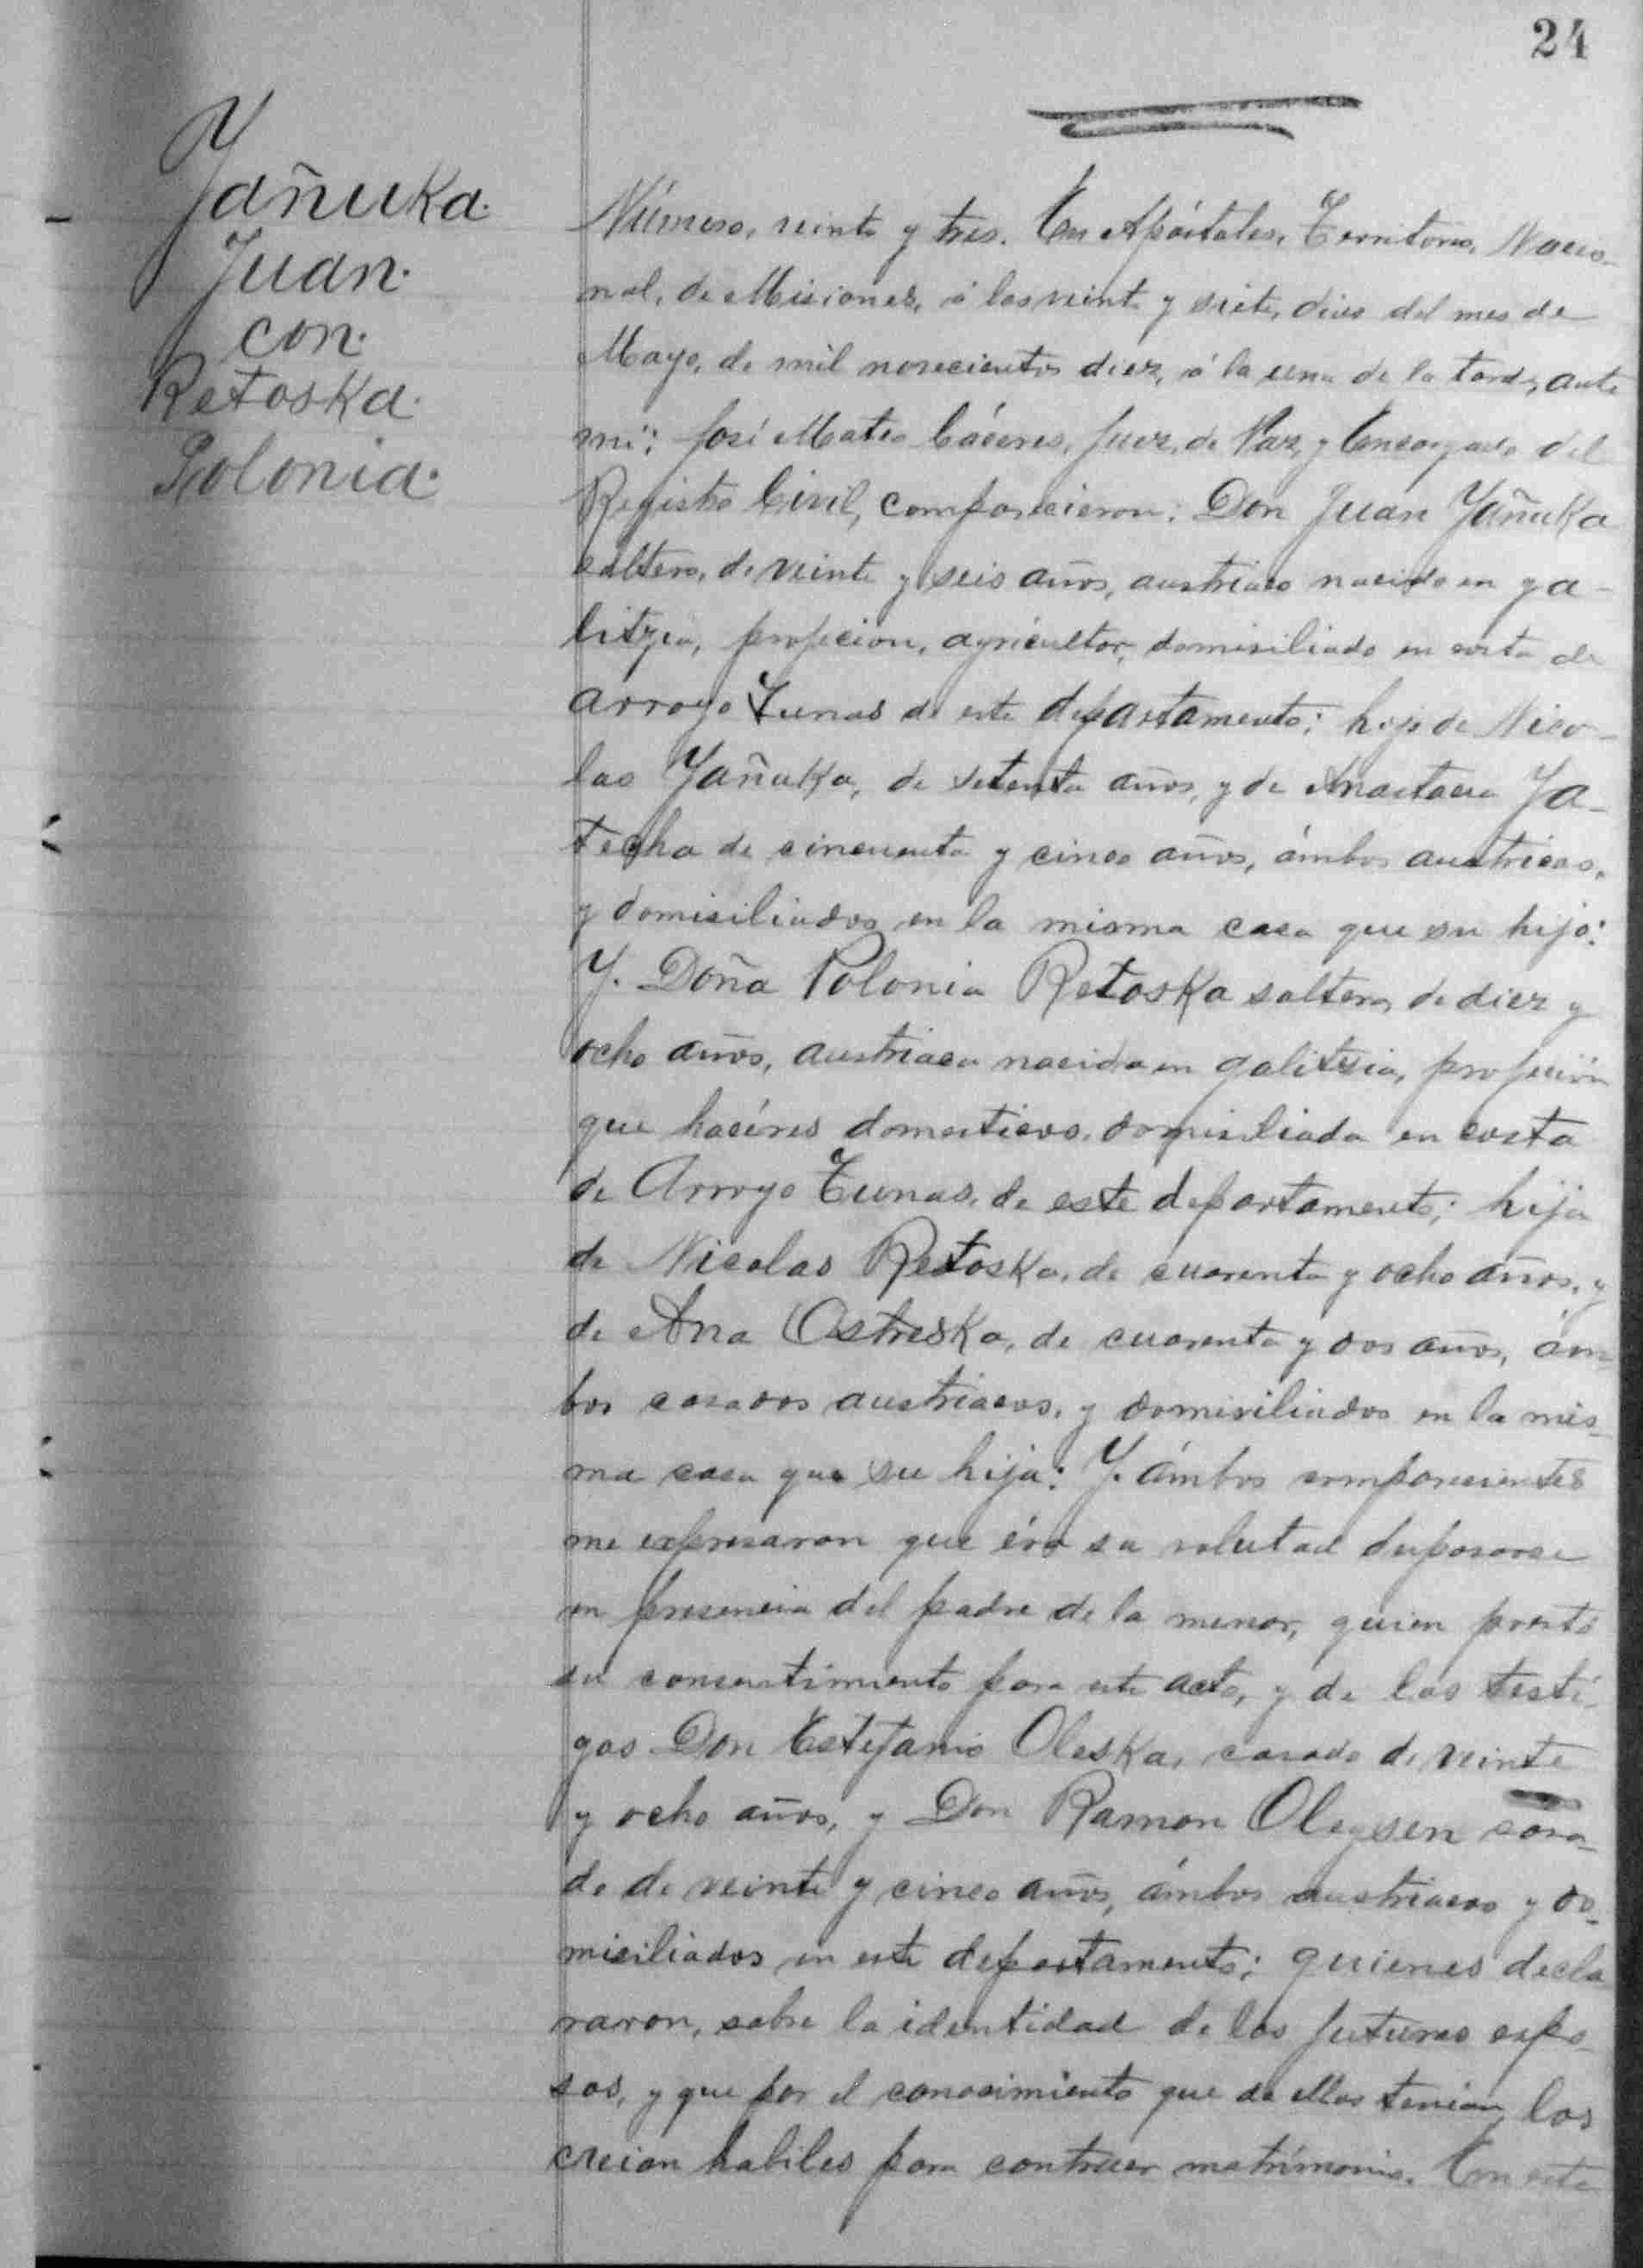 24
Yañuka.
Juan.
con.
Retoska.
Polonia.
Número, veinte y tres. En Apóstoles, Territorio, Nacio-
nal, de Misiones, á los veinte y siete, dias del mes de
Mayo, de mil novecientos diez, á la una de la tarde, ante
mi: José Mateo Cáceres, Juez, de Paz, y Encargado del
Registro Civil, comparecieron: Don Juan Yañuka
soltero, de veinte y seis años, austriaco nacido en ga-
litzia, profecion, agricultor, domisiliado en costa de
arroyo Tunas de este departamento; hijo de Nico-
las Yañuka, de setenta años, y de Anastacia Ja-
techa de cincuenta y cinco años, ámbos austricos,
y domisiliados en la misma casa que su hijo:
Y. Doña Polonia Retoska soltera, de diez y
ocho años, austriaca nacida en galitzia, profecion
que haceres domesticos, domisiliada en costa
de Arroyo Tunas, de este departamento; hija
de Nicolas Retoska, de cuarenta y ocho años, y
de Ana Ostreska, de cuarenta y dos años, ám-
bos casados austriacos, y domisiliados en la mis-
ma casa que su hija: Y. ámbos comparecientes
me expresaron que éra su volutad desposarse
en presencia del padre de la menor, quien prestó
su consentimiento para este acto, y de los testi-
gos Don Estefanio Oleska, casado de veinte
y ocho años, y Don Ramon Oleysen casa-
do de veinte y cinco años, ámbos austriacos y do-
misiliados en este departamento; quienes decla
raron, sobre la identidad de los futuros espo-
sos, y que por el conosimiento que de ellos tenian, los
creian habiles para contraer matrímonio. En este